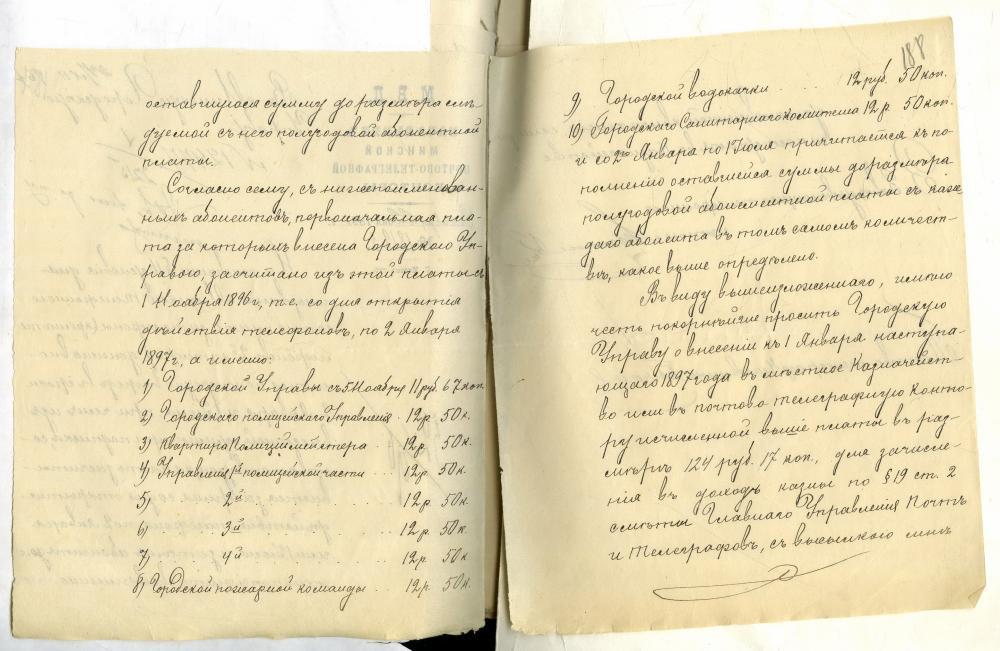 оставшуюся сумму до размѣра слѣ-
дуемой съ него полугодовой абонентной
платы.
Согласно сему, съ нижепоименован-
ныхъ абонентовъ, первоначальная пла-
та за которыхъ внесена Городскою Уп-
равою, засчитано изъ этой платы съ
1 Ноября 1896 г., т.е. со дня открытія
дѣйствія телефоновъ, по 2 Января
1897 г. а именно:
1) Городской Управы съ 5 Ноября 11 руб. 67 коп.
2) Городскаго полицейскаго Управленія . 12 р. 50 к.
3) Квартира Полиціймейстера . 12 р. 50 к.
4) Управленія 1й полицейской части . . . 12 р. 50 к.
5) . . . 2й . . . 12 р. 50 к.
6) . . . 3й . . . 12 р. 50 к.
7) . . . 4й . . . 12 р. 50 к.
8) Городской пожарной команды . . . 12 р. 50 к.
188
9) Городской водокачки . . . . 12 руб. 50 коп.
10) Городскаго Санитарнаго Комитета 12 р. 50 коп.
и со 2го Января по 1 Іюля причитается къ по-
полненію оставшейся суммы до размѣра
полугодовой абонементной платы съ каж-
даго абонента въ томъ самомъ количест-
вѣ, какое выше опредѣлено.
Въ виду вышеизложеннаго, имѣю
честь покорнѣйше просить Городскую
Управу о внесеніи къ 1 Января наступа-
ющаго 1897 года въ мѣстное Казначейст-
во или въ почтово-телеграфную конто-
ру исчисленной выше платы въ раз-
мѣрѣ 124 руб. 17 коп., для зачисле-
нія въ доходъ казны по § 19 ст. 2
смѣты Главнаго Управленія Почтъ
и Телеграфовъ, съ высылкою мнѣ